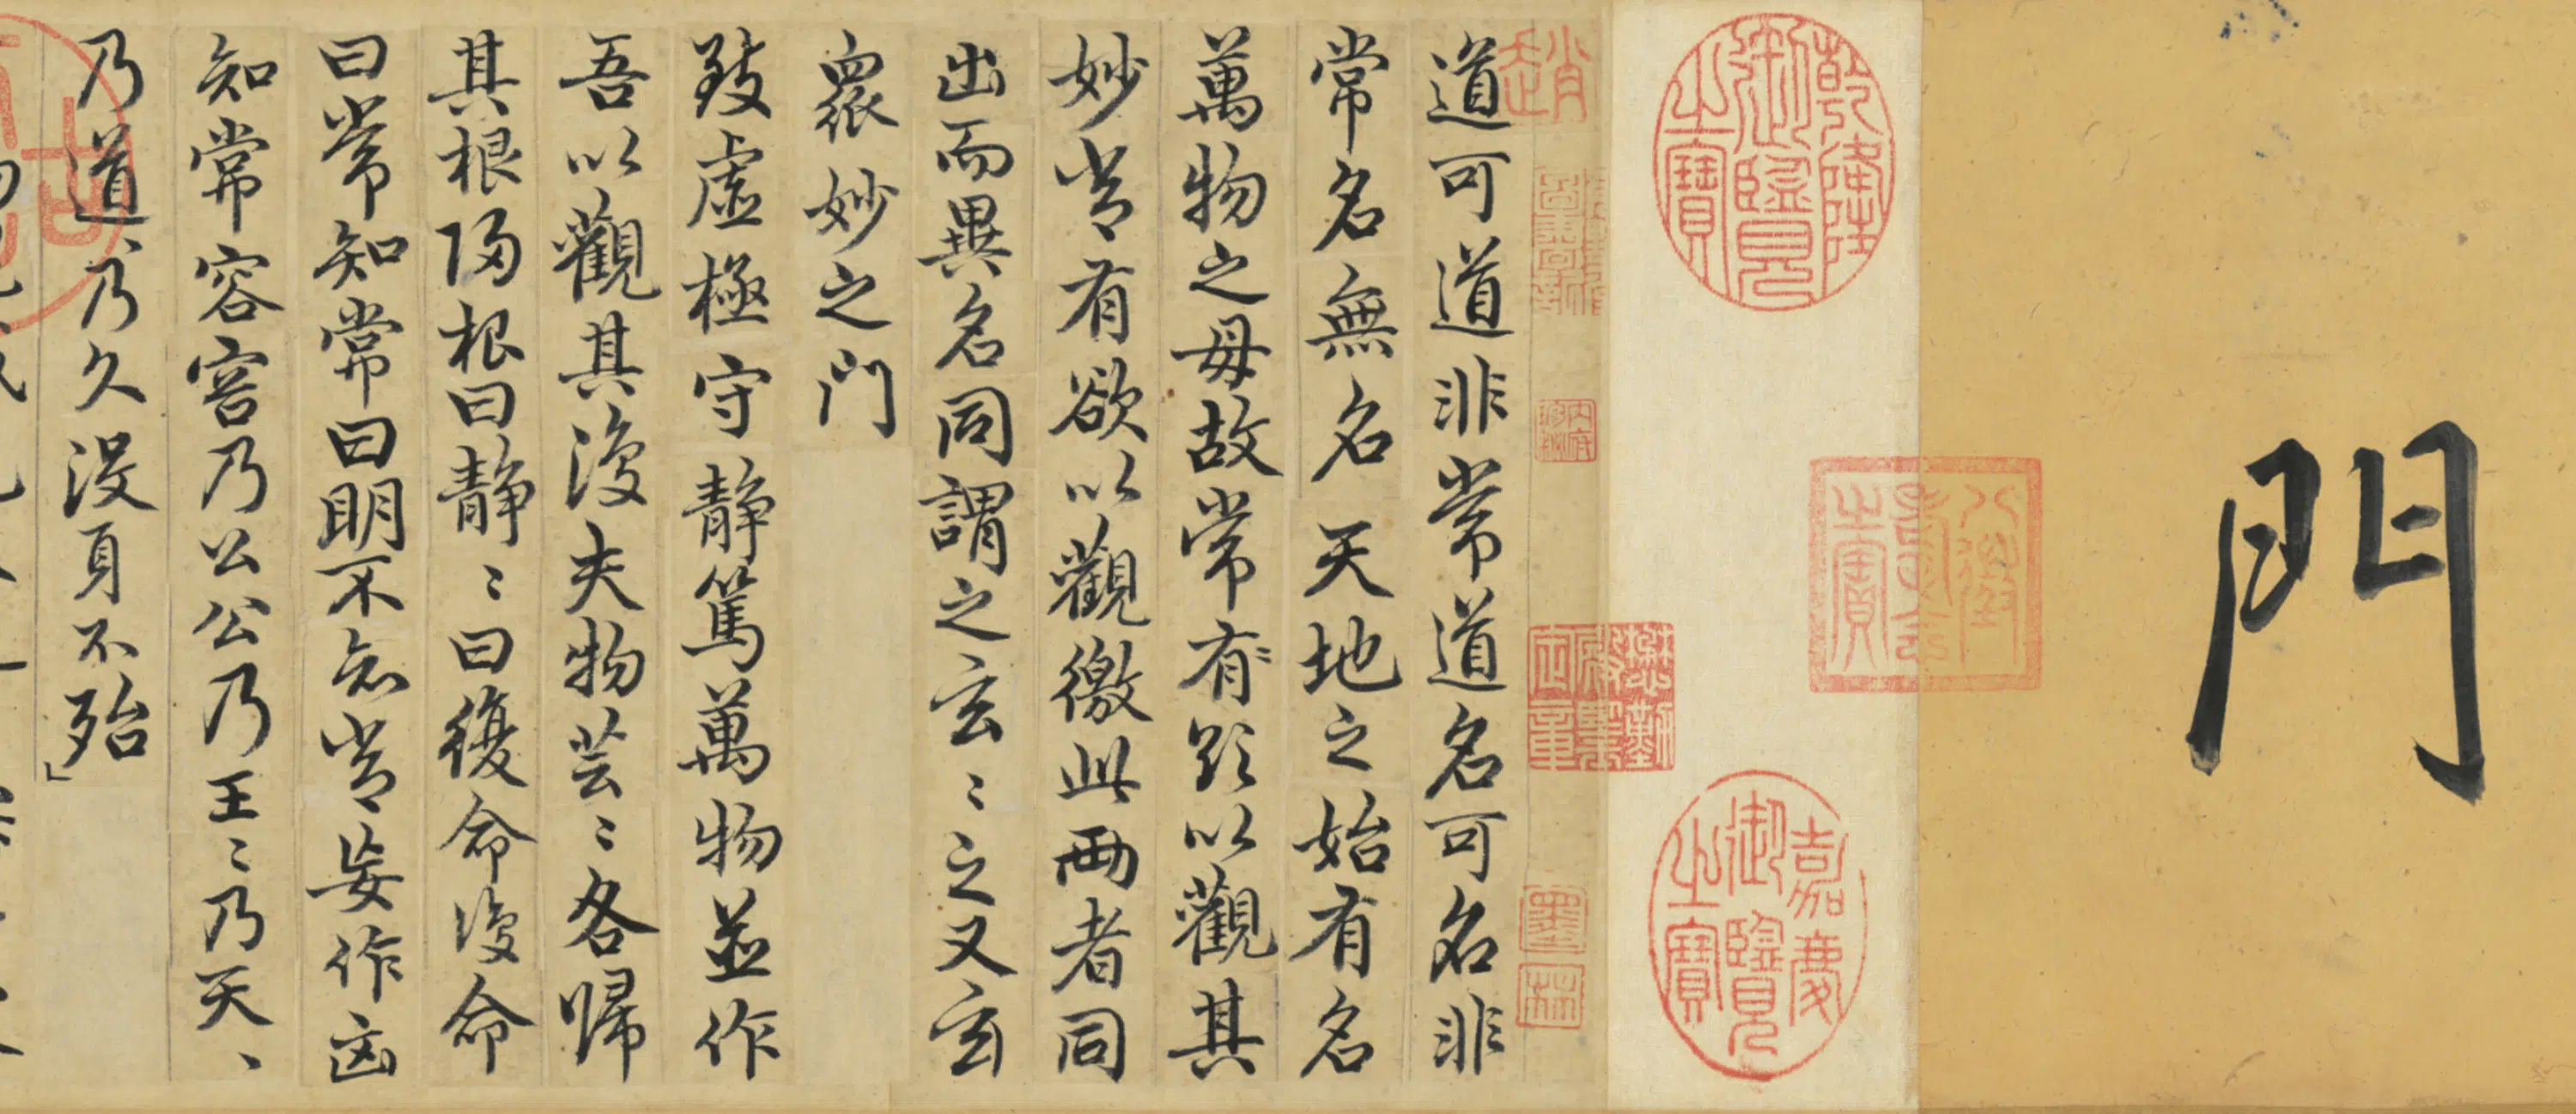 門
乾隆御覽之寶
八徵耄念之寶
嘉慶御覽之寶
懋勤殿鑑定章
趙
墨林
道可道非常道名可名非
常名無名天地之始有名
萬物之母故常有欲以觀其
妙常有欲以觀徼此兩者同
出而異名同謂之玄〻之又玄
眾妙之門
致虛極守靜篤萬物並作
吾以觀其復夫物芸〻各歸
其根歸根曰靜〻曰復命復命
曰常知常曰明不知常妄作凶
知常容容乃公公乃王〻乃天〻
乃道〻乃久沒身不殆